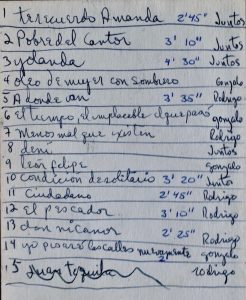 1 te recuerdo Amanda 2'45" Juntos
2 Pobre del Cantor 3' 10" Juntos
3 yolanda 4' 30" Juntos
4 oleo de mujer con sombrero Gonzalo
5 A donde van 3' 35" Rodrigo
6 El tiempo, el implacable el que pasó gonzalo
7 Menos mal que existen Rodrigo
8 Juntos
9 león felipe gonzalo
10 condición de solitario 3' 20" Juntos
11 Ciudadano 2' 45" Rodrigo
12 El pescador 3' 10" Rodrigo
13 don nicanor 2' 25" Rodrigo
14 yo pisaré las calles nuevamente gonzalo
15 Juan rodrigo